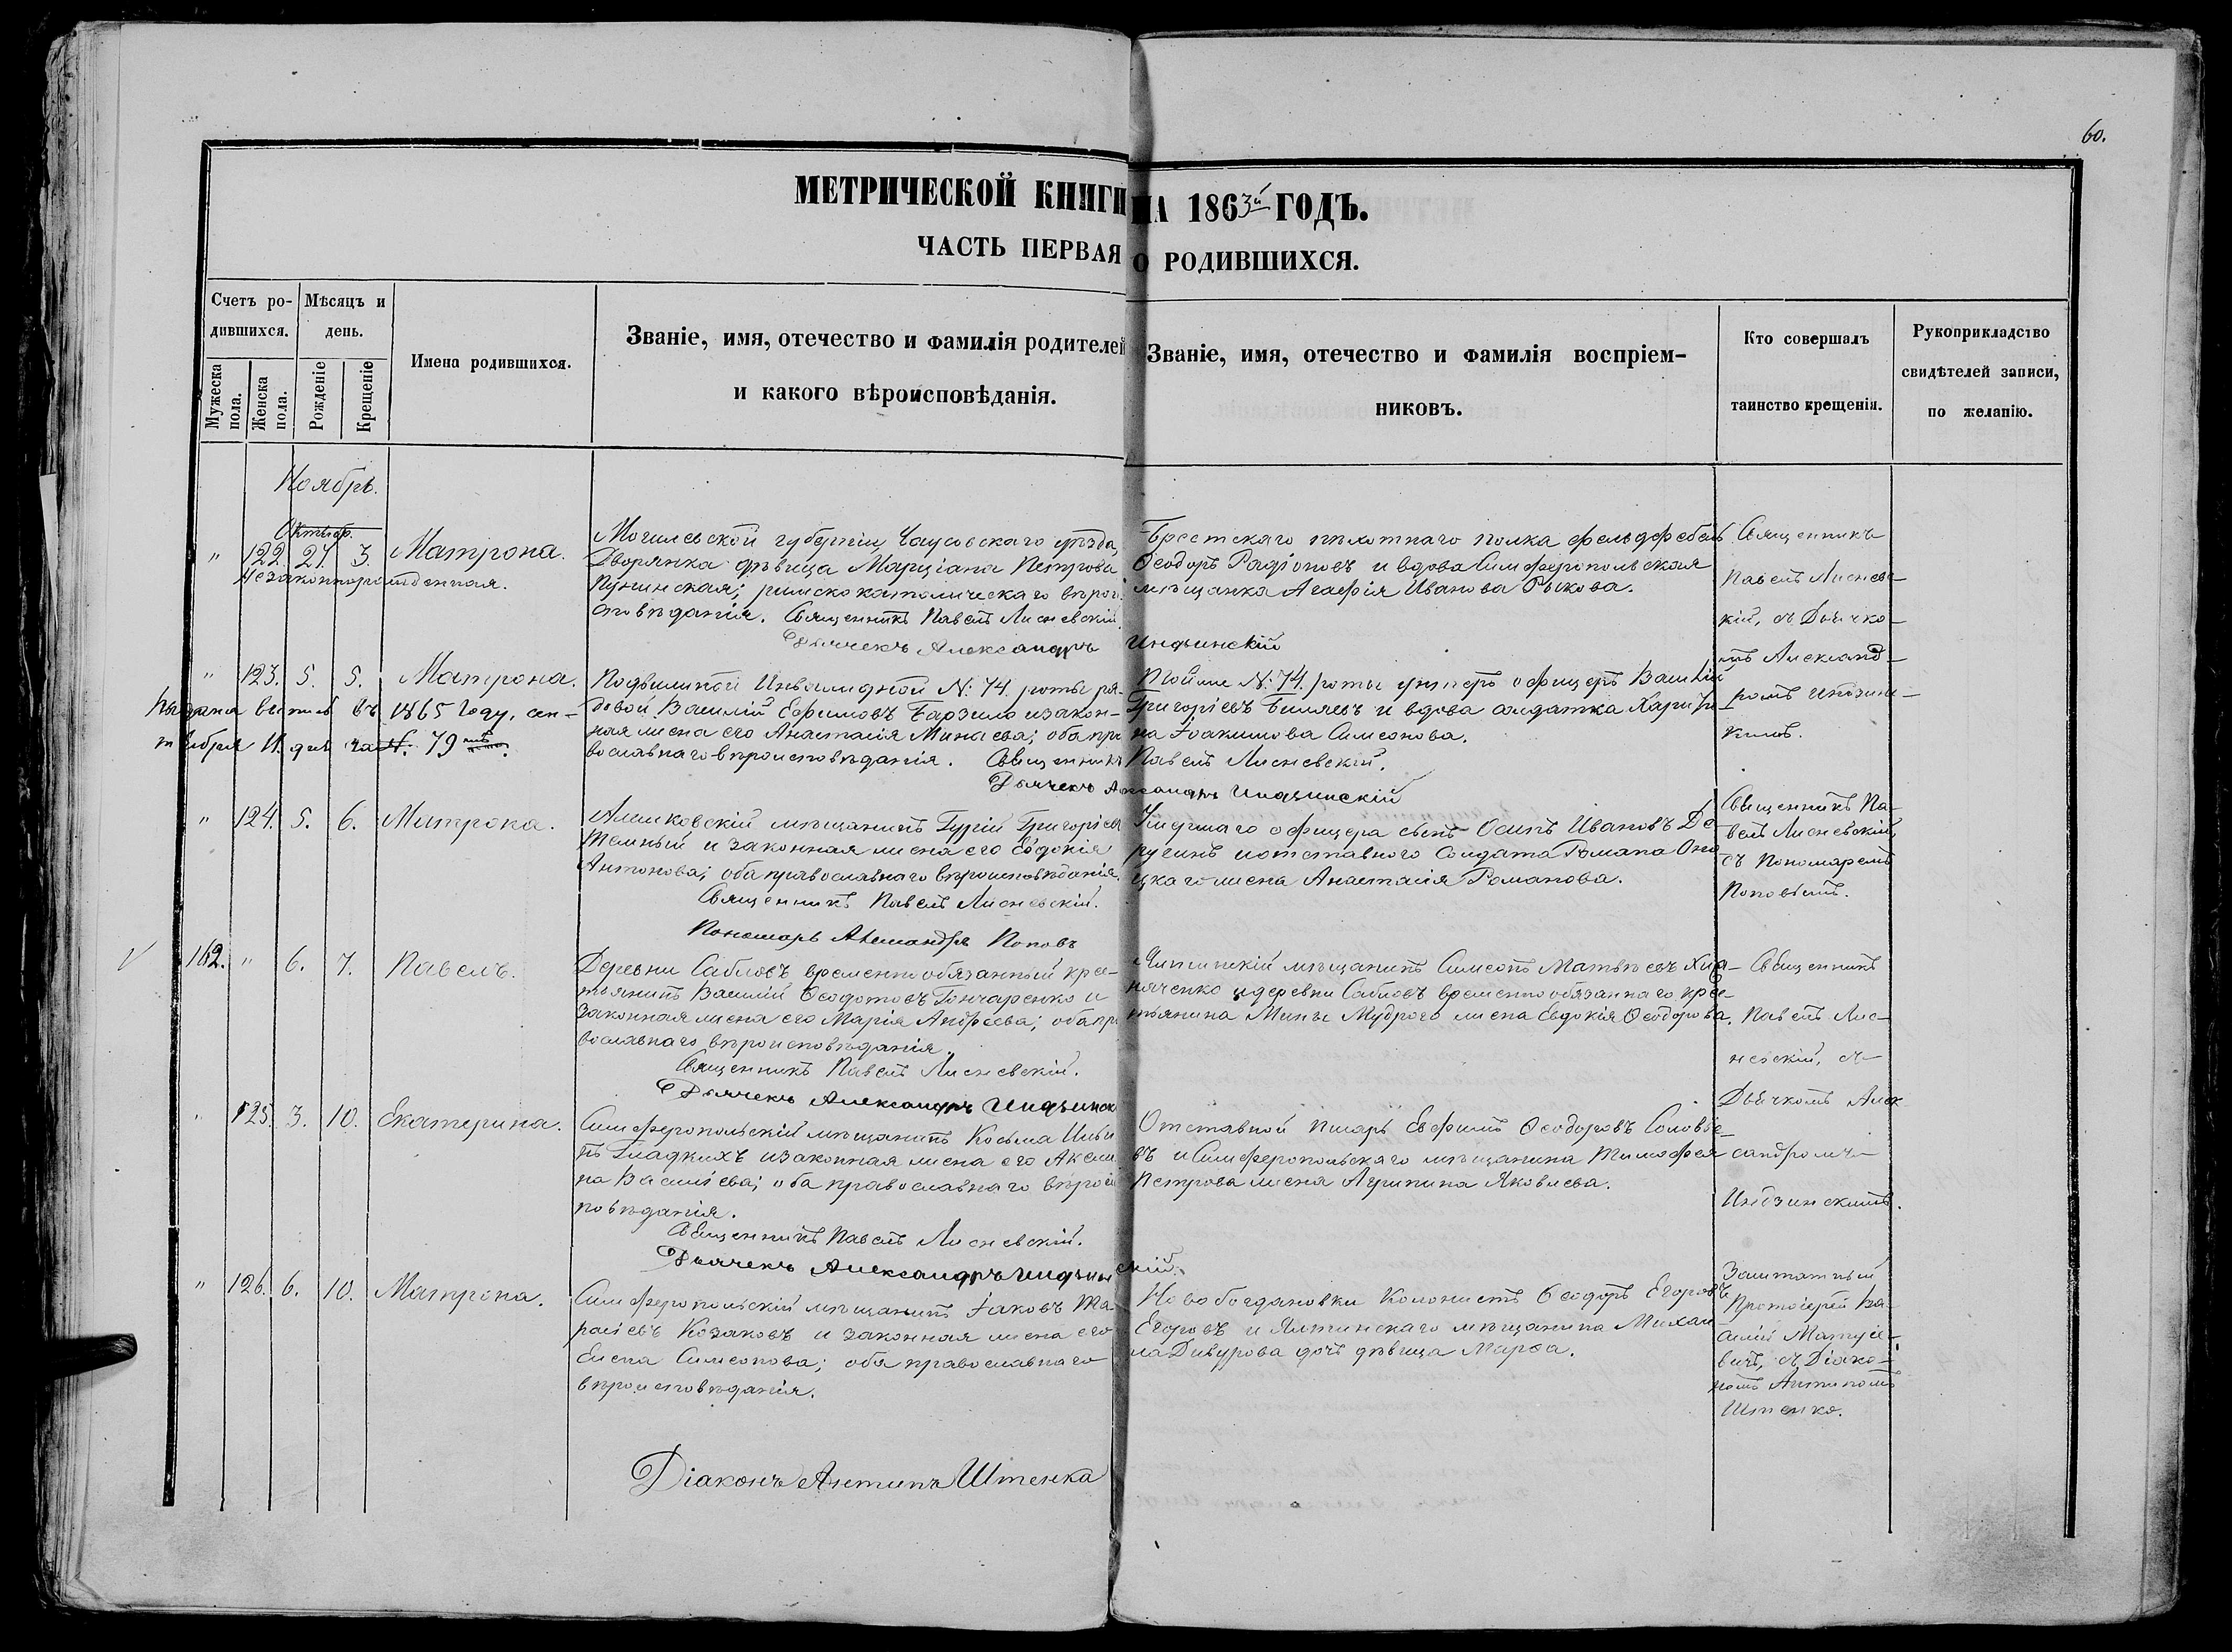 60.
МЕТРИЧЕСКОЙ КНИГИ НА 1863й ГОДЪ.
ЧАСТЬ ПЕРВАЯ О РОДИВШИХСЯ.
Счетъ ро-
дившихся.
Мужеска пола.
Женска пола.
Мѣсяцъ и
день.
Рожденіе
Крещеніе
Имена родившихся.
Званіе, имя, отечество и фамилія родителей
и какого вѣроисповѣданія.
Званіе, имя, отечество и фамилія воспріем-
никовъ.
Кто совершалъ
таинство крещенія.
Рукоприкладство
свидѣтелей записи,
по желанію.
Ноябрь.
Октябр.
" 122. 27. 3. Матрона.
Незаконнорожденная.
Могилевской губерніи, Чаусовскаго уѣзда,
Дворянка дѣвица Марціана Петрова
римскокатолическаго вѣрои-
сповѣданія. Священникъ Павелъ Лисневскій.
Дьячекъ Александръ Индзинскій
Брестскаго пѣхотнаго полка фельдфебель
Ѳеодоръ Радіоновъ и вдова Симферопольская
мѣщанка Агафія Иванова Рыкова.
Священникъ
Павелъ Лиснев-
кій, съ Дьячко-
мъ Александ-
ромъ Индзин-
кимъ.
" 123. 5. 5. Матрона.
въ 1865 году, сен-
тября 11 дня за N. 79
Подвижной Инвалидной N: 74. роты ря-
довой Василій Ефимовъ и закон-
ная жена его Анастасія Минаева; оба пра
вославнаго вѣроисповѣданія. Священникъ Павелъ Лисневскій.
Дьячекъ Александръ Индзинскій
Той же N: 74. роты унтеръ офицеръ Василій
Григорьевъ Биляевъ и вдова солдатка Харити
на Іоакимова Симеонова.
" 124. 5. 6. Матрона.
Алешковскій мѣщанинъ Гурій Григорьевъ
Темный и законная жена его Евдокія
Антонова; оба православнаго вѣроисповѣданія.
Священникъ Павелъ Лисневскій.
Пономарь Александръ Поповъ
Умершаго офицера сынъ Осипъ Ивановъ Де
ругинъ и отставного Солдата Романа Оно
цкаго жена Анастасія Романова.
Священникъ Па-
велъ Лисневскій,
съ Пономаремъ
Поповымъ.
162. " 6. 7. Павелъ.
Деревни Сабловъ временнообязанный крес-
тьянинъ Василій Ѳеодотовъ Гончаренко и
законная жена его Марія Андреева; оба пра
вославнаго вѣроисповѣданія.
Священникъ Павелъ Лисневскій.
Дьячекъ Александръ Индзинск
Ялтинскій мѣщанинъ Симеонъ Матвѣевъ
и деревни Сабловъ временнообязаннаго крес-
тьянина Мины Мудрого жена Евдокія Ѳеодорова.
Священникъ
Павелъ Лис-
невскій, съ
Дьячкомъ Алек
сандромъ
Индзинскимъ.
" 125. 3. 10. Екатерина.
Симферопольскій мѣщанинъ Косьма Ильи
нъ Гладкихъ и законная жена его Аксин
на Васильева; оба православнаго вѣроис
повѣданія.
Священникъ Павелъ Лисневскій.
Дьячекъ Александръ Индзинскій.
Отставной писарь Евфимъ Ѳеодоровъ Соловье-
въ и Симферопольскаго мѣщанина Тимофея
Петрова жена Агрипина Яковлева.
" 126. 6. 10. Матрона.
Симферопольскій мѣщанинъ Іаковъ Та-
расіевъ Козаковъ и законная жена его
Елена Симеонова; оба православнаго
вѣроисповѣданія.
Діаконъ Антипъ Штенка
Новобогдановки Колонистъ Ѳеодоръ Егоровъ
Егоровъ и Ялтинскаго мѣщанина Михаи
ла Дивурова дочь дѣвица Марѳа.
Заштатный
Протоіерей Ва-
силій Матусе-
вичъ, съ Діако-
номъ Антипомъ
Штенко.